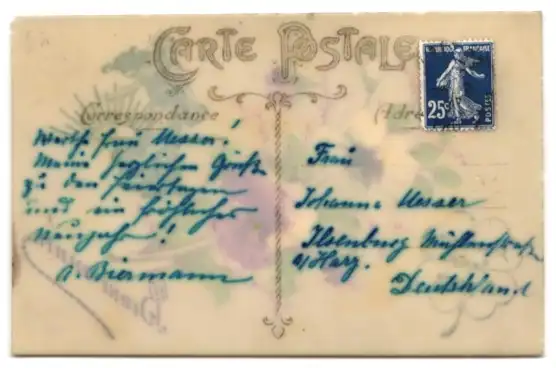 CARTE POSTALE
RÉPUBLIQUE FRANÇAISE
25c
POSTES
Correspondance
Adre
Werthe Frau Messer!
Meine herzlichen Grüße
zu den Feiertagen
und ein fröhliches
Neujahr!
Biermann
Frau
Johanna Messer
Ilsenburg Mühlenstraße
a/Harz.
Deutschland